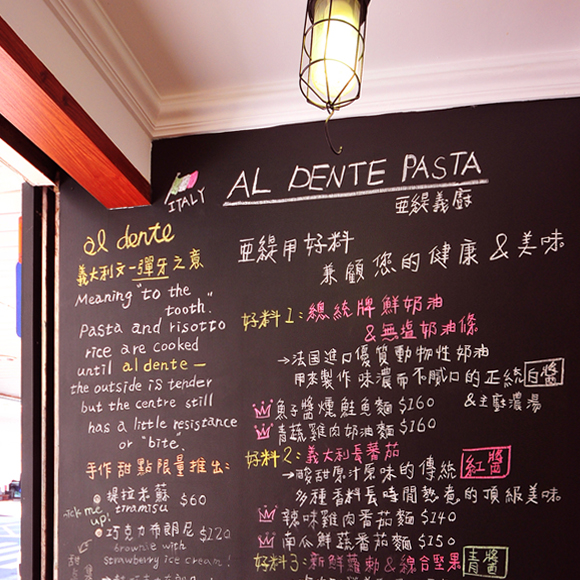 ITALY
AL DENTE PASTA
亞緹義廚
al dente
義大利文-彈牙之意
Meaning "to the
tooth."
Pasta and risotto
rice are cooked
until al dente —
the outside is tender
but the centre still
has a little resistance
or "bite".
手作甜點限量推出:
提拉米蘇 $60
tiramisu
Pick me
up!
巧克力布朗尼 $120
brownie with
strawberry ice cream!
亞緹用好料
兼顧您的健康&美味
好料1:總統牌鮮奶油
&無塩奶油條
→法国進口優質動物性奶油
用來製作味濃而不膩口的正統白醬
&主廚濃湯
魚子醬燻鮭魚麵 $160
青蔬雞肉奶油麵 $160
好料2:義大利長番茄
→酸甜原汁原味的傳統紅醬
多種香料長時間熬煮的頂級美味
辣味雞肉番茄麵 $140
南瓜鮮蔬番茄麵 $150
好料3:新鮮蘿勒&綜合堅果 青醬